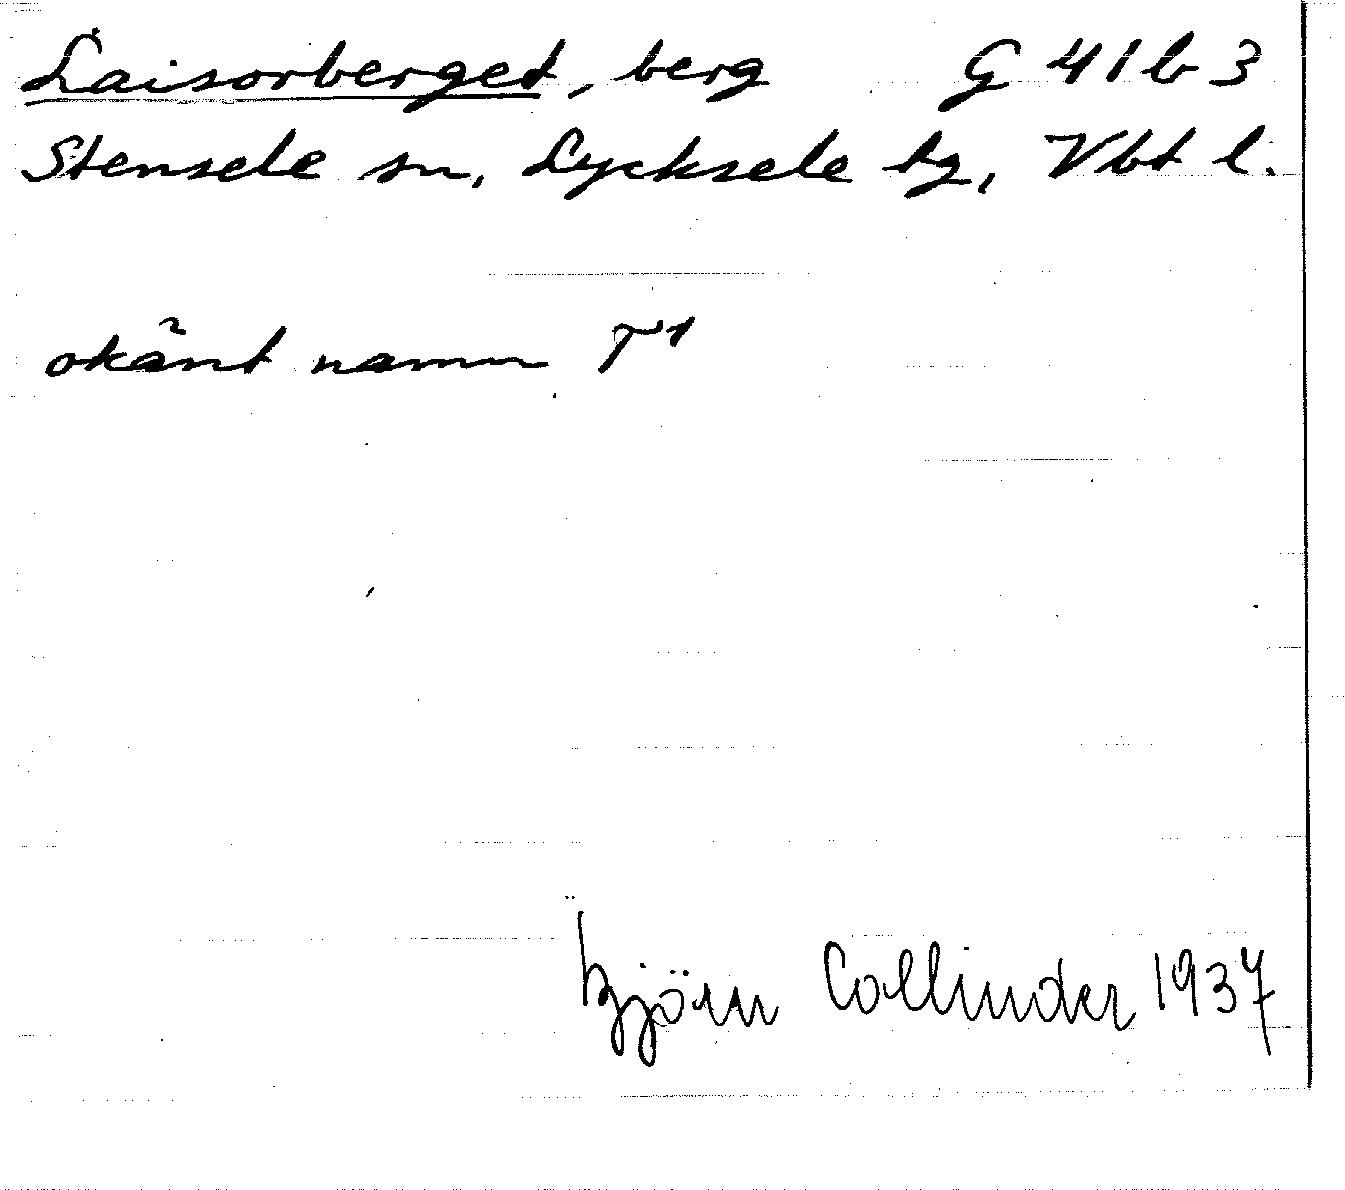 Laisorberget, berg G 41 b 3
Stensele sn, Lycksele tg, Vbt l.
okänt namn T¹
Björn Collinder 1937